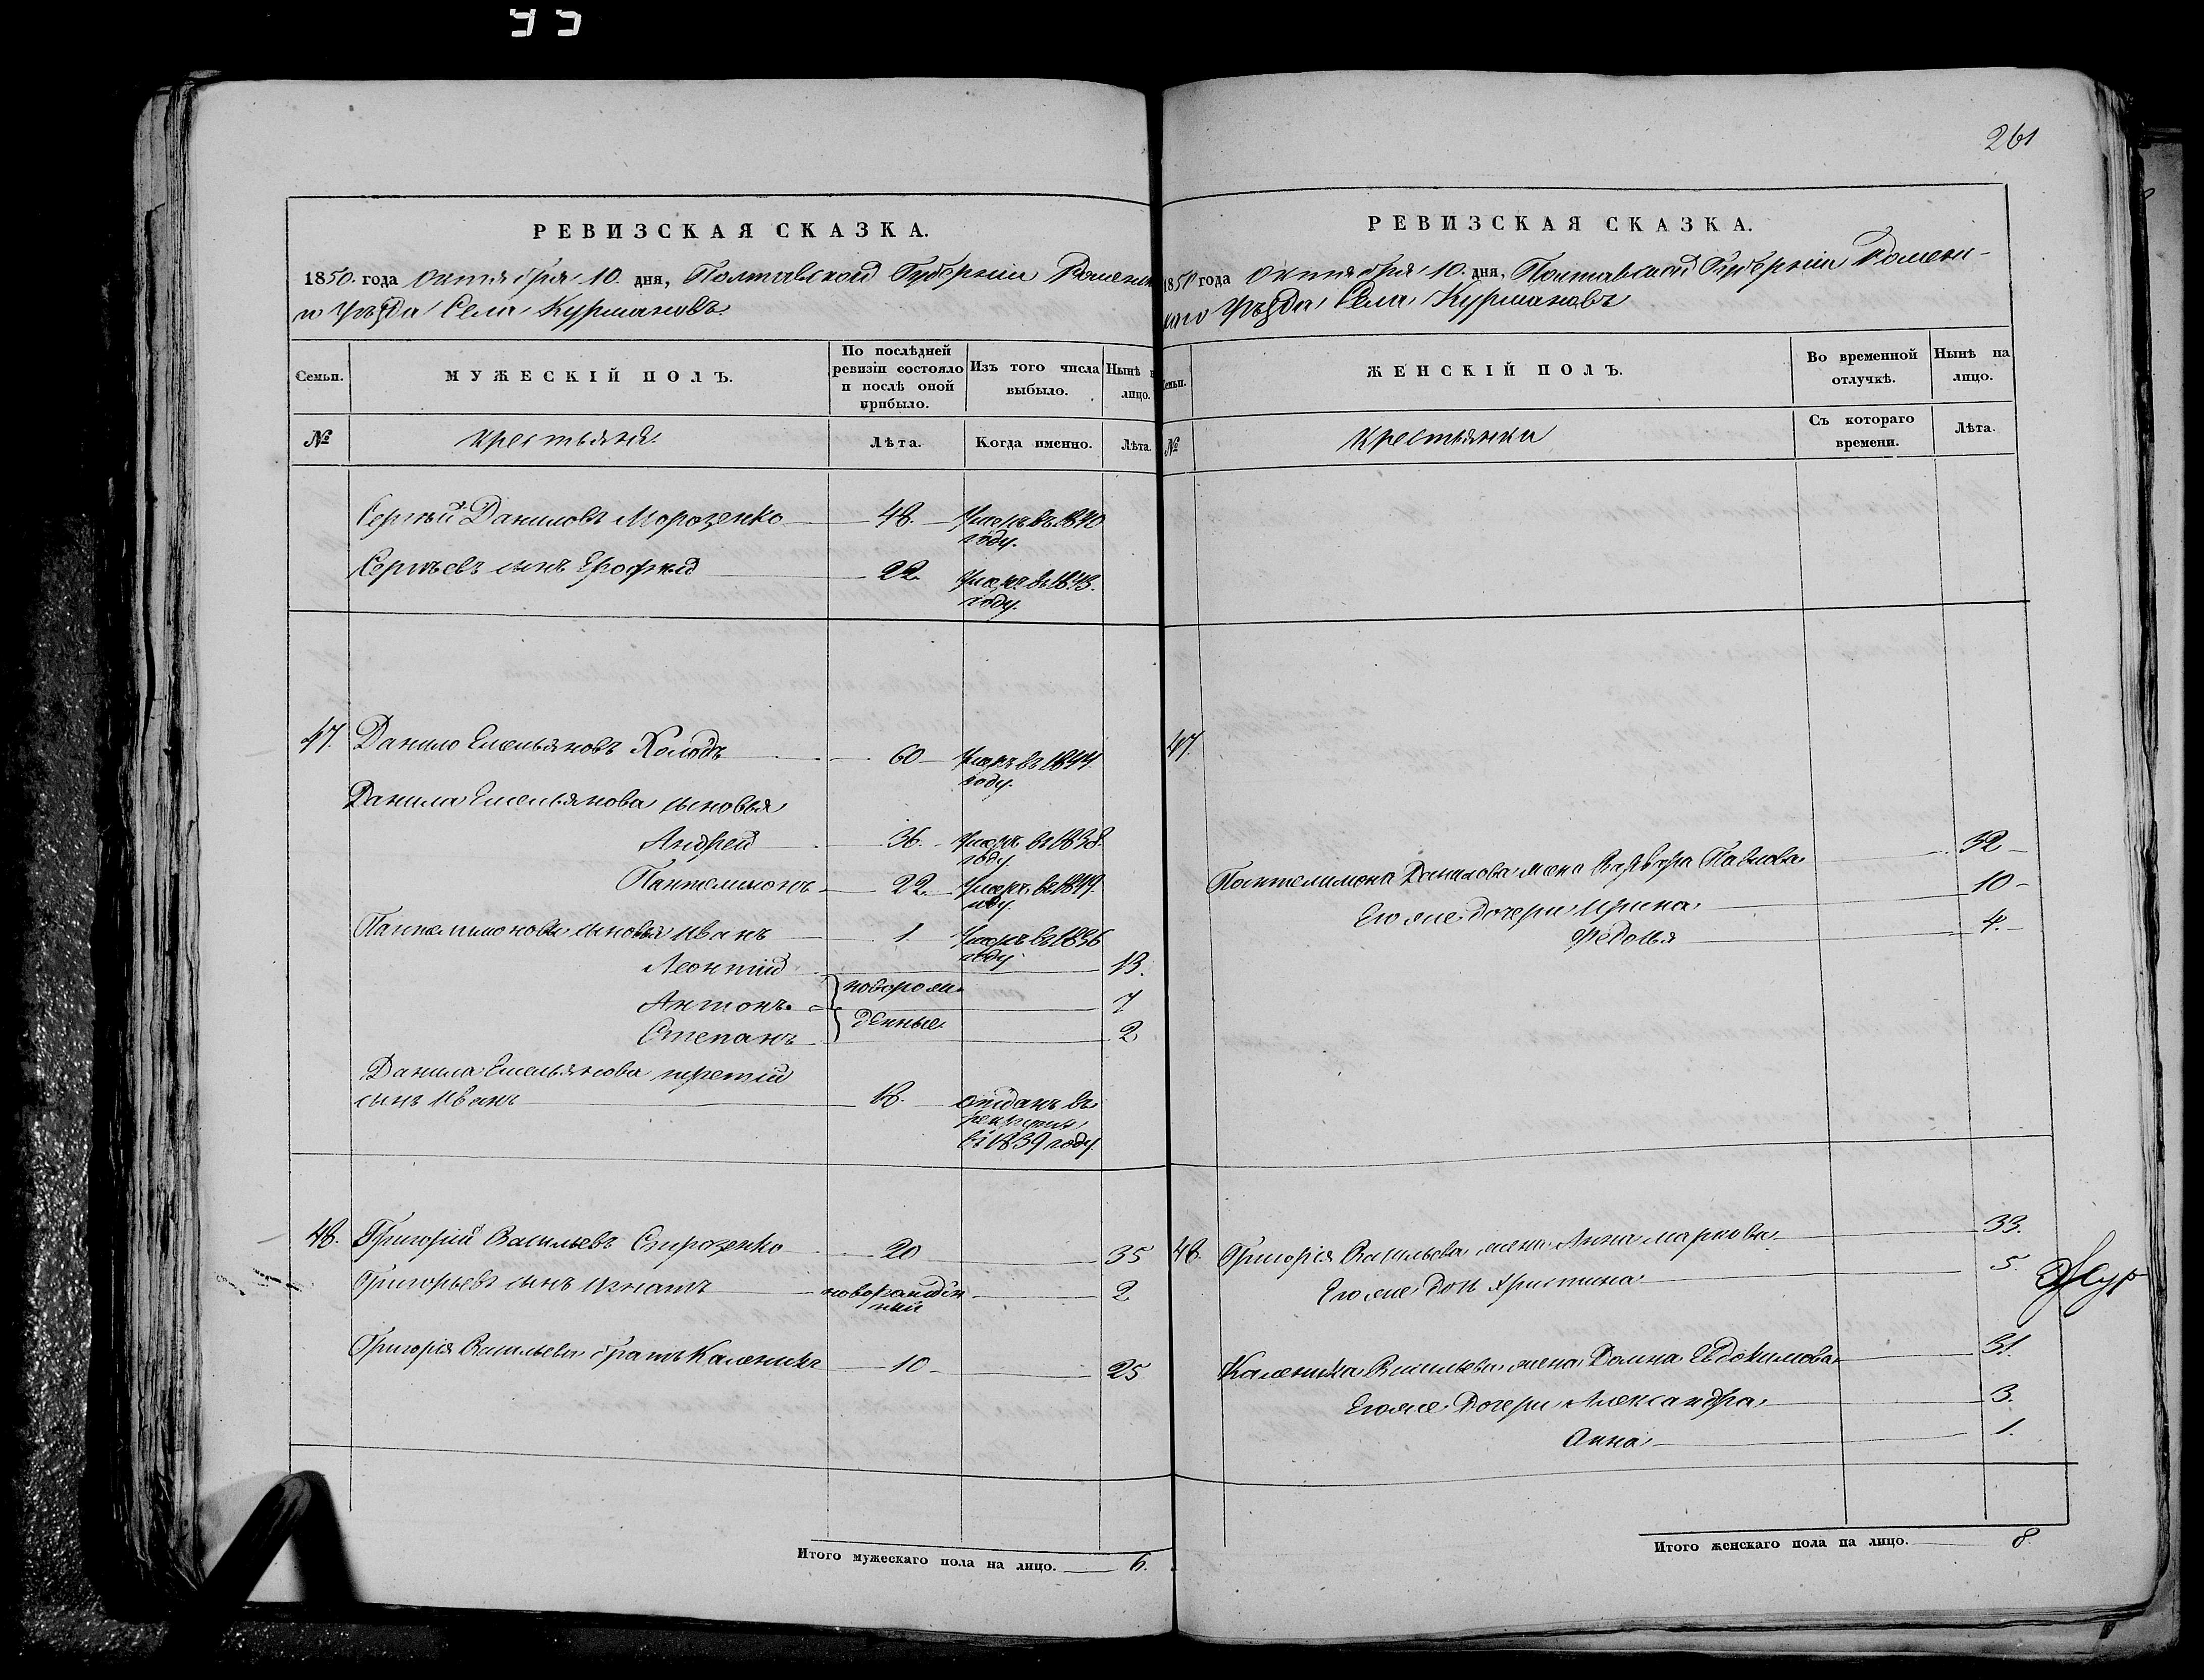 261
РЕВИЗСКАЯ СКАЗКА.
1850. года Октября 10. дня, Полтавской Губерніи Роменска
го Уѣзда Села Курмановъ
Семьи.
МУЖЕСКІЙ ПОЛЪ.
По послѣдней
ревизіи состояло
и послѣ оной
прибыло.
Изъ того числа
выбыло.
Нынѣ н
лицо.
№
Крестьяня
Лѣта.
Когда именно.
Лѣта.
Сергѣй Даниловъ Морозенко 48. Умеръ въ 1840
году.
Сергѣевъ сынъ Ерофей 22. Умеръ въ 1843.
году.
47. Данило Емельяновъ Холодъ 60 Умеръ въ 1844
году.
Данила Емельянова сыновья
Андрей 36. Умеръ въ 1838.
году
Пантелимонъ 22. Умеръ въ 1849.
году.
Пантелимоновы сыновья Иванъ 1. Умеръ въ 1836
году
Леонтій 13.
Антонъ новорож 7
Степанъ денные 2
Данила Емельянова третій
сынъ Иванъ 18. отданъ въ
рекруты
въ 1839 году
48. Григорій Васильевъ Сырозенко 20 35
Григорьевъ сынъ Игнатъ новорожден
ный 2
Григорія Васильева братъ Каленикъ 10 25
Итого мужескаго пола на лицо. 6.
РЕВИЗСКАЯ СКАЗКА.
1850 года Октября 10. дня, Полтавской Губерніи Роменс-
каго Уѣзда Села Курмановъ
Семьи.
ЖЕНСКІЙ ПОЛЪ.
Во временной
отлучкѣ.
Нынѣ на
лицо.
№
Крестьянки
Съ котораго
времени.
Лѣта.
47.
Пантелимона Данилова жена Варвара Павлова 32
Его же дочери Ирина 10
Федосья 4.
48. Григорія Васильева жена Анна Маркова 33.
Его же дочь Христина 5.
Каленика Васильева жена Домна Евдокимова 31.
Его же дочери Александра 3.
Анна 1.
Итого женскаго пола на лицо. 8.